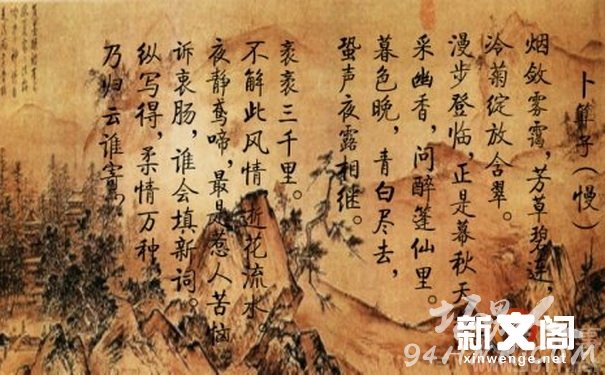 卜算子(慢)
烟敛雾霭,芳草碧莲,
冷菊绽放含翠。
漫步登临,正是暮秋天
采幽香,问醉篷仙里。
暮色晚,青白尽去,
蛩声夜露相继。
衮衮三千里。
不解此风情,逝花流水。
夜静鸯啼,最是惹人苦恼
诉衷肠,谁会填新词。
纵写得,柔情万种
乃归云谁寄?
新文阁
xinwenge.net